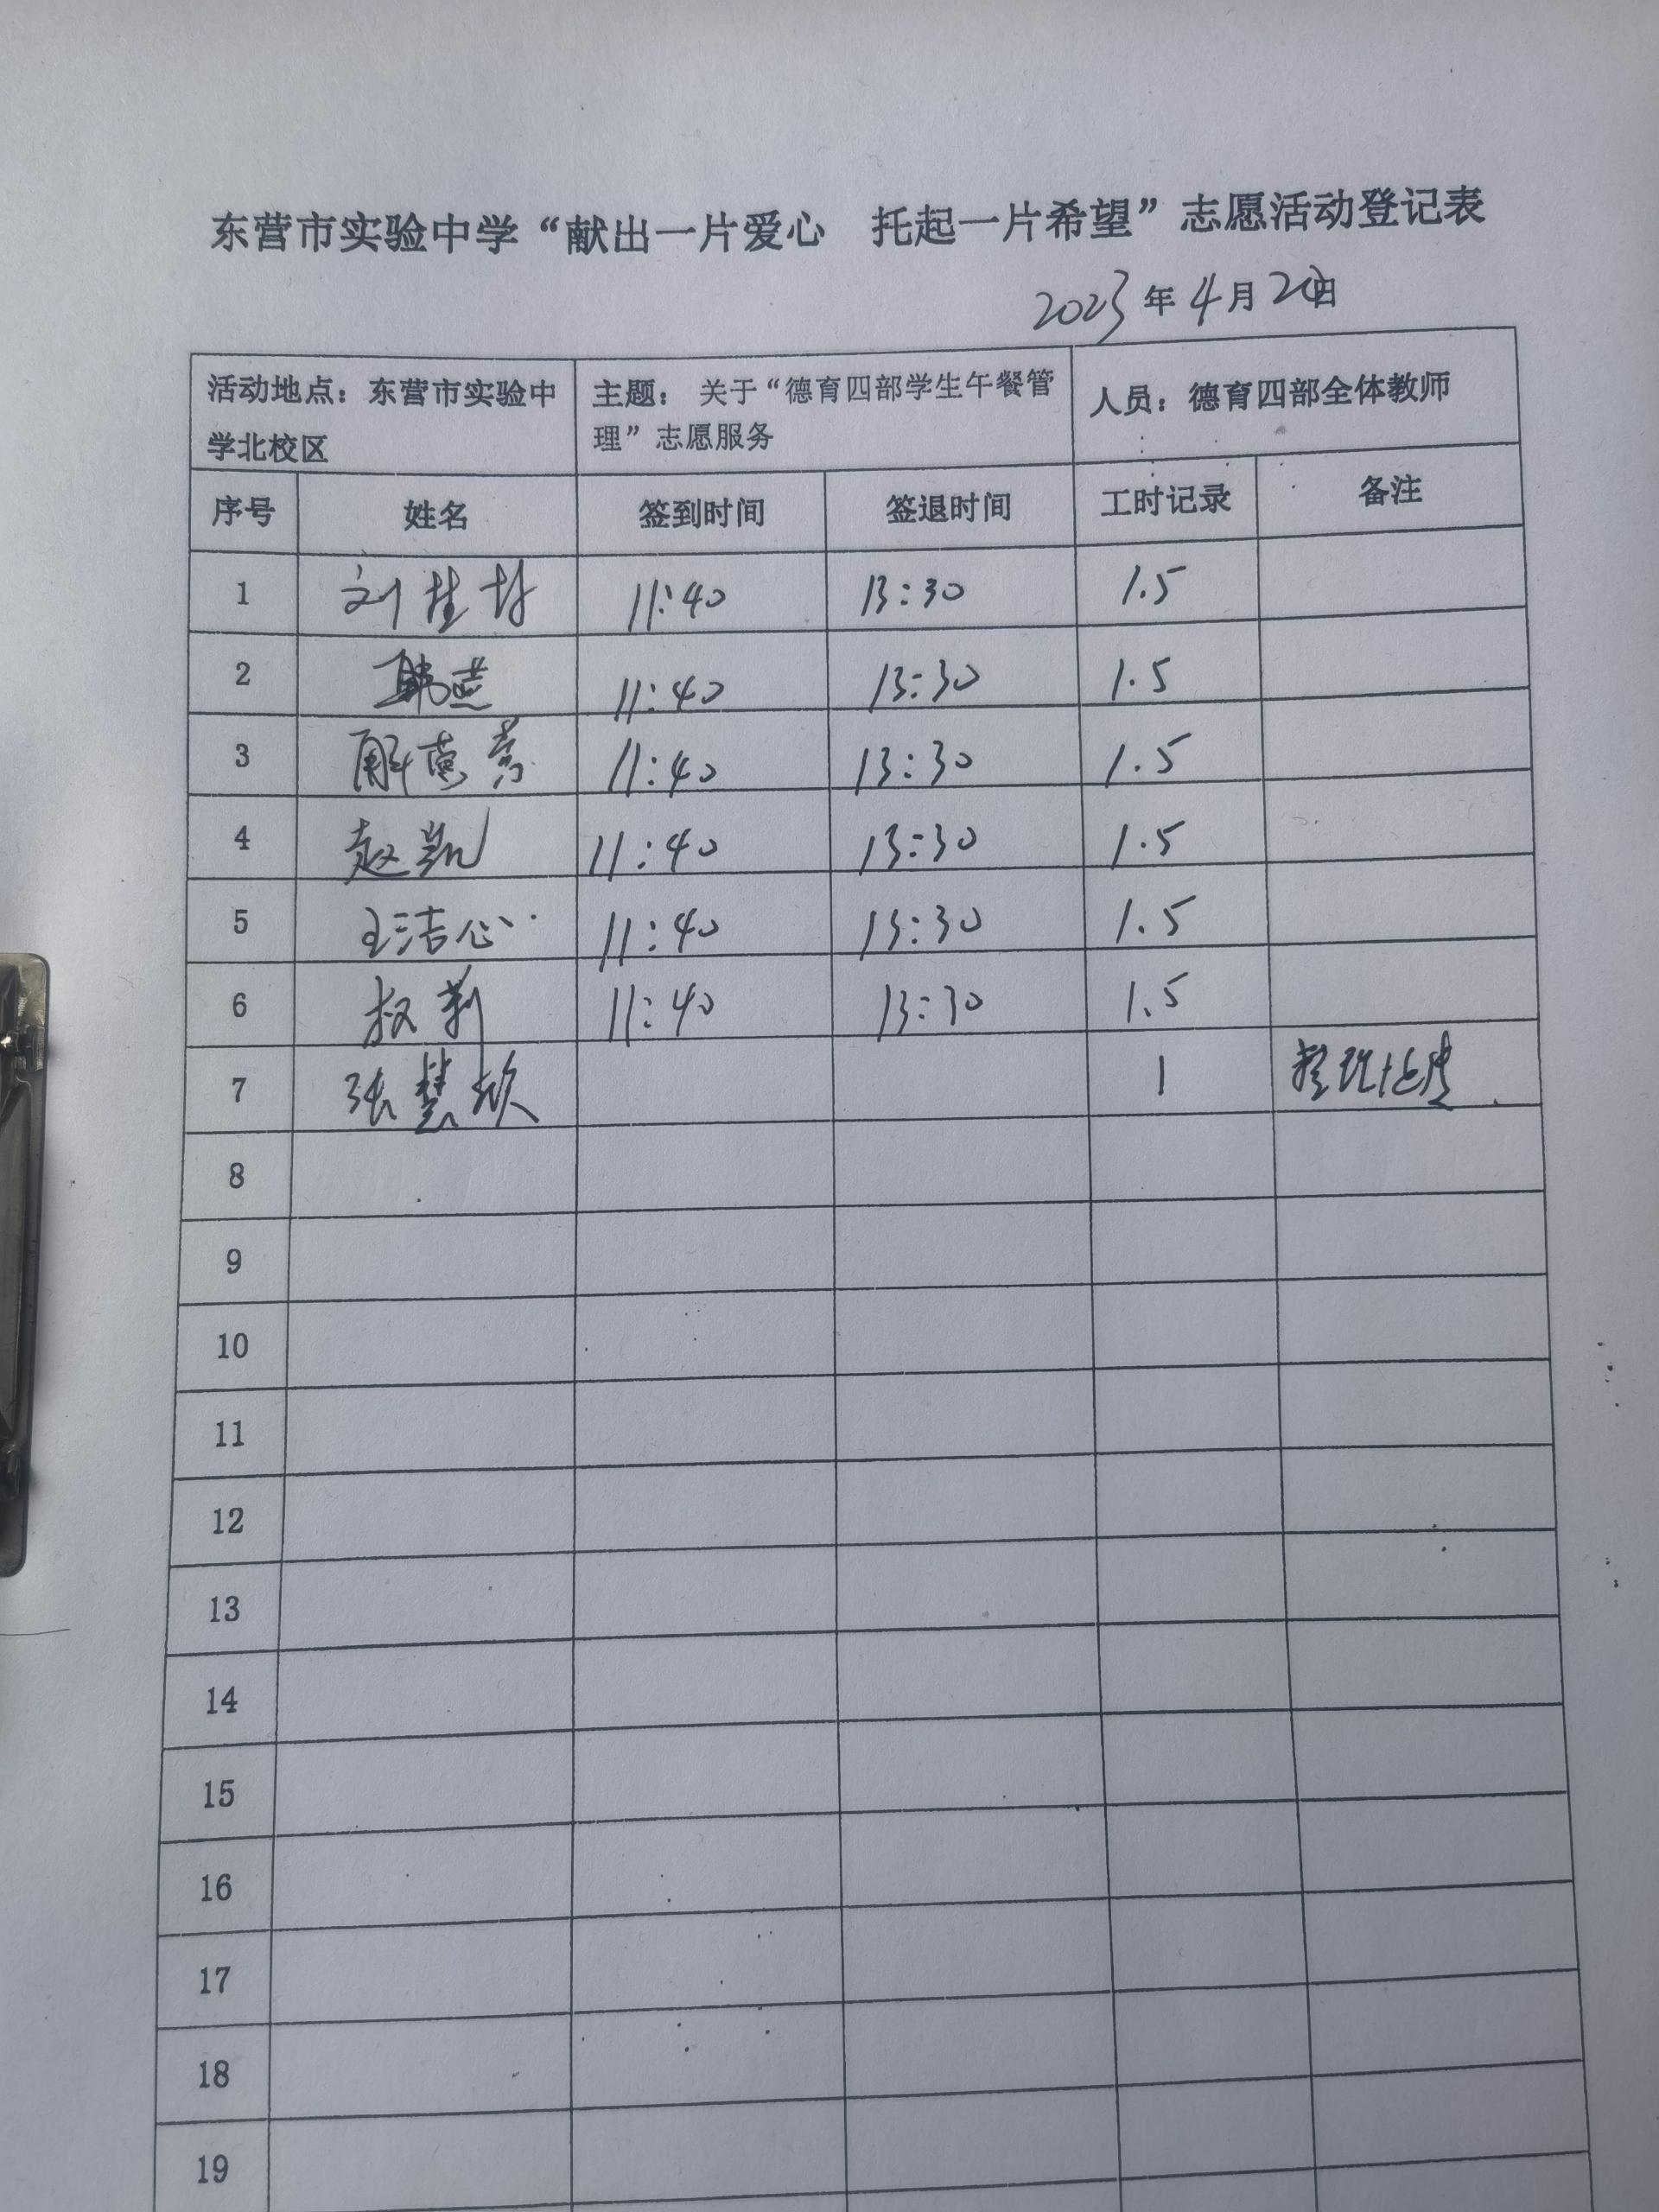 东营市实验中学“献出一片爱心 托起一片希望”志愿活动登记表
2023年4月20日
活动地点：东营市实验中学北校区 主题：关于“德育四部学生午餐管理”志愿服务 人员：德育四部全体教师
序号 姓名 签到时间 签退时间 工时记录 备注
1 刘桂 11:40 13:30 1.5
2 韩燕 11:40 13:30 1.5
3 解 11:40 13:30 1.5
4 赵凯 11:40 13:30 1.5
5 王洁心 11:40 13:30 1.5
6 权莉 11:40 13:30 1.5
7 张慧欣 1 整理
8
9
10
11
12
13
14
15
16
17
18
19